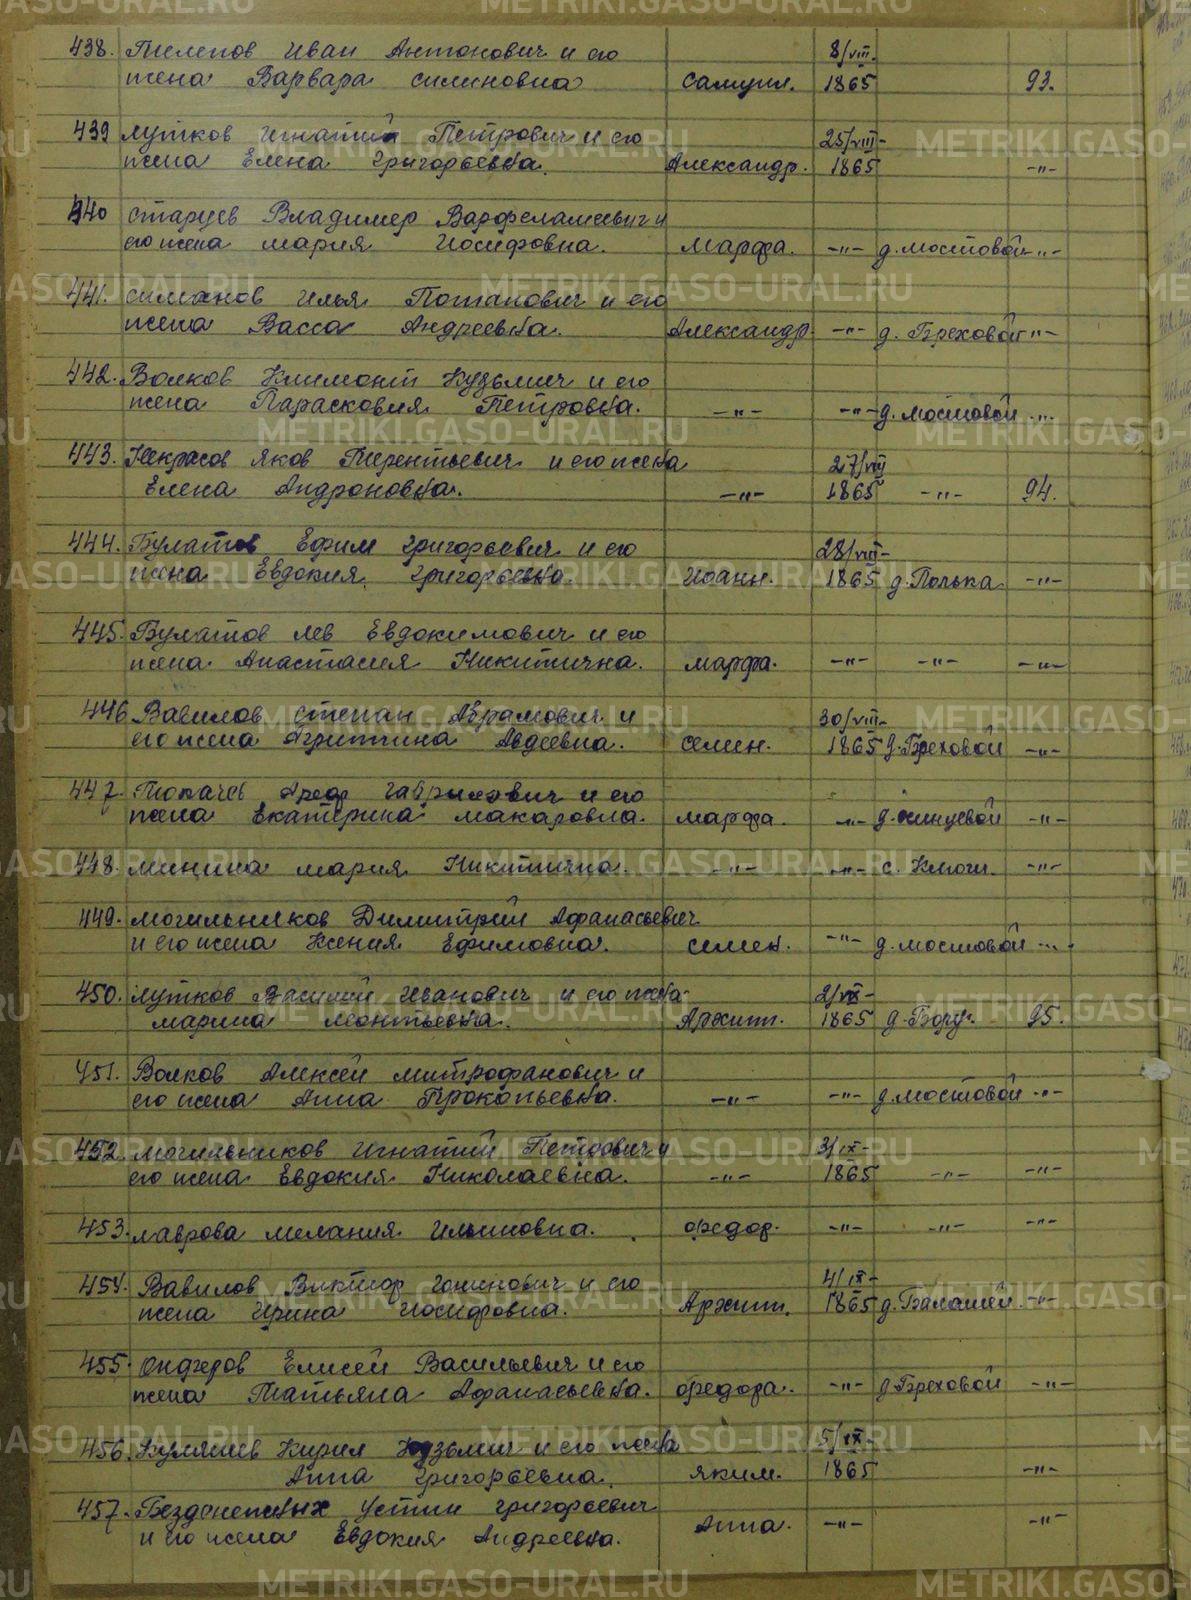 438. Пилепов Иван Антонович и его 8/VIII-
жена Варвара Силиновна Самуил. 1865 93.
439 Лутков Игнатий Петрович и его 25/VIII-
жена Елена Григорьевна. Александр. 1865 -"-
440 Старцев Владимер Варфеламеевич и
его жена Мария Иосифовна. Марфа. -"- д. Мостовой -"-
441. Симанов Илья Потапович и его
жена Васса Андреевна. Александр. -"- д. Греховой -"-
442. Волков Климонт Кузьмич и его
жена Парасковия Петровна. -"- -"- д. Мостовой -"-
443. Некрасов Яков Терентьевич и его жена 27/VIII
Елена Андроновна. -"- 1865 -"- 94.
444. Булатов Ефим Григорьевич и его 28/VIII-
жена Евдокия Григорьевна. Иоанн. 1865 д. Полька -"-
445. Булатов Лев Евдокимович и его
жена Анастасия Никитична. Марфа. -"- -"- -"-
446 Вавилов Степан Абрамович и 30/VIII-
его жена Агриппина Авдеевна. Семен. 1865 д. Греховой -"-
447. Топачев Гаврилович и его
жена Екатерина Макаровна. Марфа. -"- д. -"-
448. Минина Мария Никитична. -"- -"- с. Ключи. -"-
449. Могильников Димитрий Афанасьевич
и его жена Ксения Ефимовна. Семен. -"- д. Мостовой -"-
450. Лутков Василий Иванович и его жена 2/IX-
Марина Леонтьевна. Архип. 1865 д. Бору. 95.
451. Волков Алексей Митрофанович и
его жена Анна Прокопьевна. -"- -"- д. Мостовой -"-
452. Могильников Игнатий Петрович и 3/IX-
его жена Евдокия Николаевна. -"- 1865 -"- -"-
453. Лаврова Мелания Ильиновна. Федор. -"- -"- -"-
454. Вавилов Виктор и его 4/IX-
жена Ирина Иосифовна. Архип. 1865 д. -"-
455. Елисей Васильевич и его
жена Татьяна Афанасьевна. Федора. -"- д. Греховой -"-
456. Кирил Кузьмич и его жена 5/IX-
Анна Григорьевна. Яким. 1865 -"-
457. Безденежных Устин Григорьевич
и его жена Евдокия Андреевна. Анна. -"- -"-
METRIKI.GASO-URAL.RU